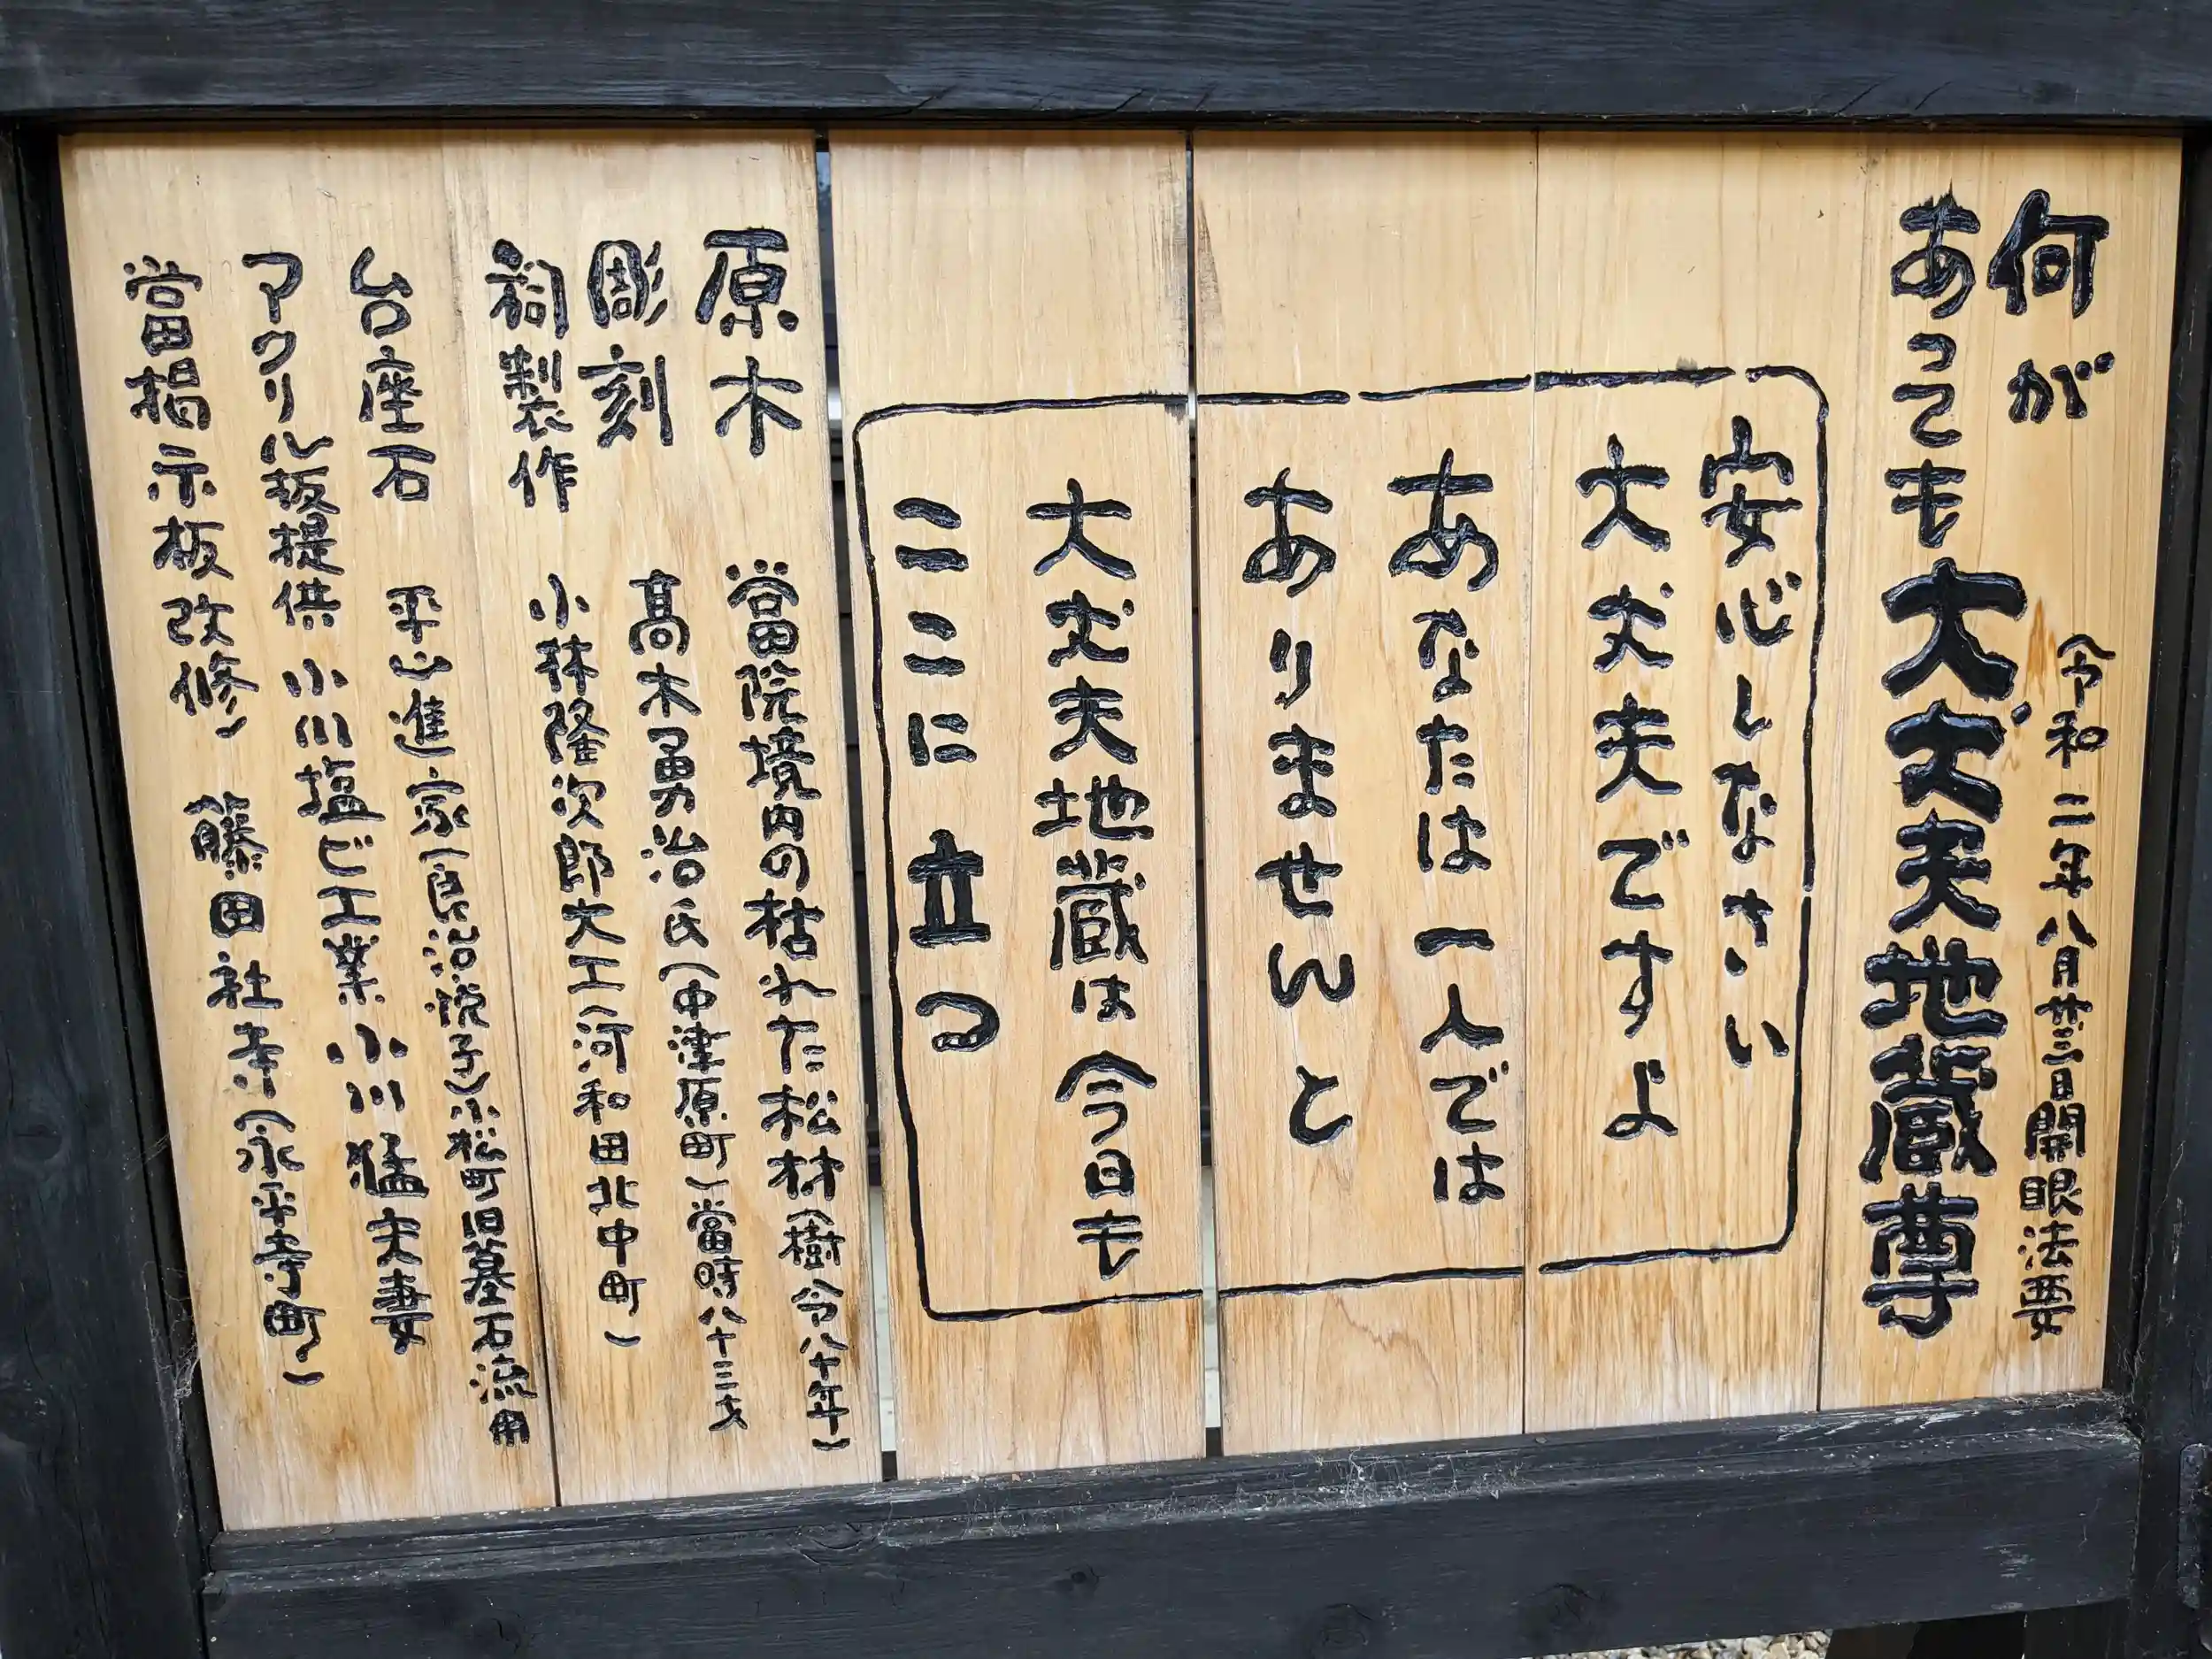 何が
あっても大丈夫地蔵尊
令和二年八月廿三日開眼法要
安心しなさい
大丈夫ですよ
あなたは一人では
ありませんと
大丈夫地蔵は今日も
ここに立る
原木 當院境内の枯れた松材(樹令八十年)
彫刻 髙木勇治氏(中津原町)當時八十三才
祠製作 小林隆次郎大工(河和田北中町)
台座石 平山進家(良治 悦子)小松町旧墓石流用
アクリル板提供 小川塩ビ工業 小川猛夫妻
當掲示板改修) 藤田社寺(永平寺町)